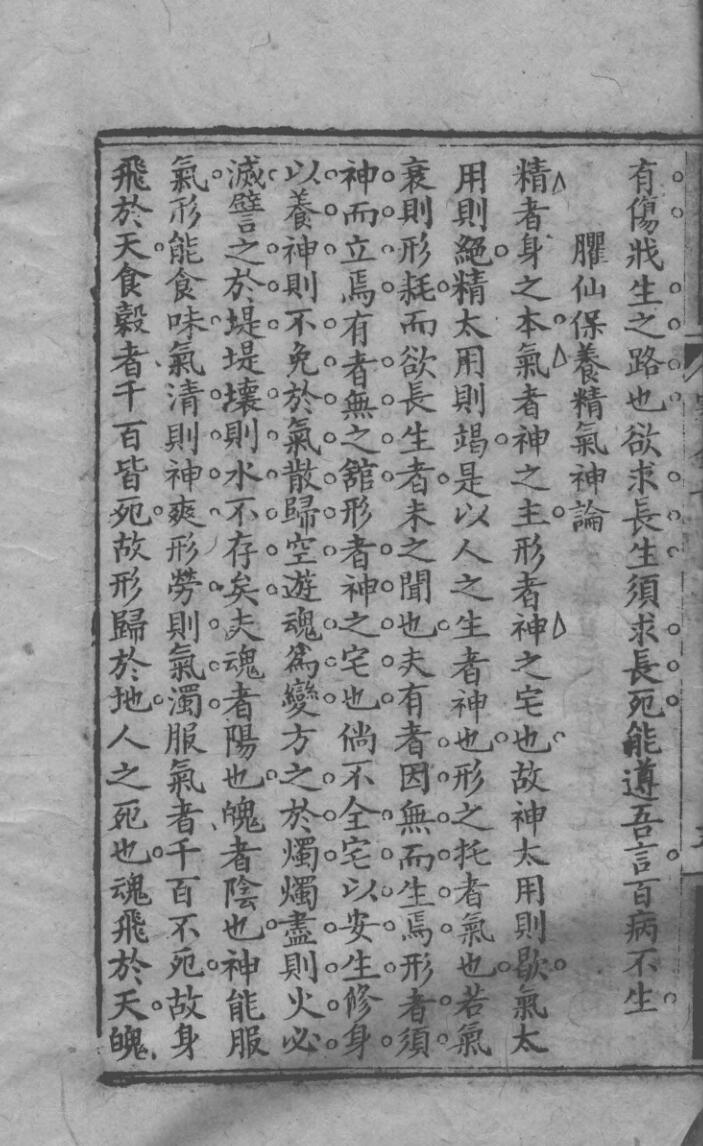 有傷戕生之路也欲求長生須求長死能遵吾言百病不生
臞仙保養精氣神論
精者身之本氣者神之主形者神之宅也故神太用則歇氣太
用則絕精太用則竭是以人之生者神也形之托者氣也若氣
衰則形耗而欲長生者未之聞也夫有者因無而生焉形者須
神而立焉有者無之舘形者神之宅也倘不全宅以安生修身
以養神則不免於氣散歸空遊魂爲變方之於燭燭盡則火必
滅譬之於堤堤壞則水不存矣夫魂者陽也魄者陰也神能服
氣形能食味氣清則神爽形勞則氣濁服氣者千百不死故身
飛於天食穀者千百皆死故形歸於地人之死也魂飛於天魄